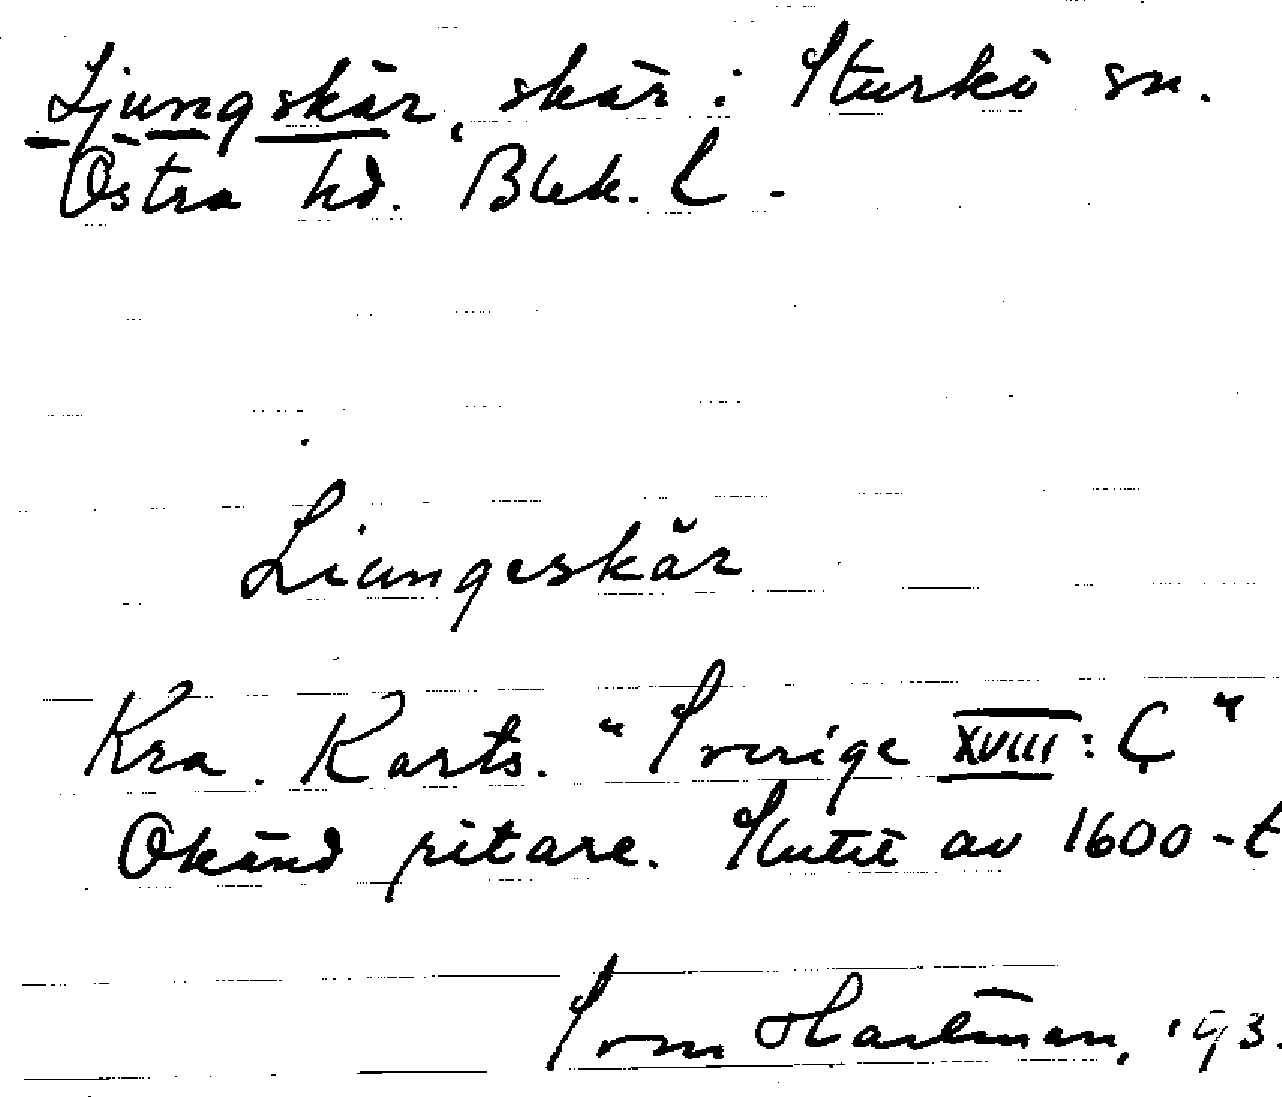 Ljungskär, skär i Sturkö sn.
Östra hd. Blek. L -
Liungeskär
Kra. Karts. "Sverige XVIII: C"
Okänd ritare. Slutet av 1600-t
Sven Hartman, '93.